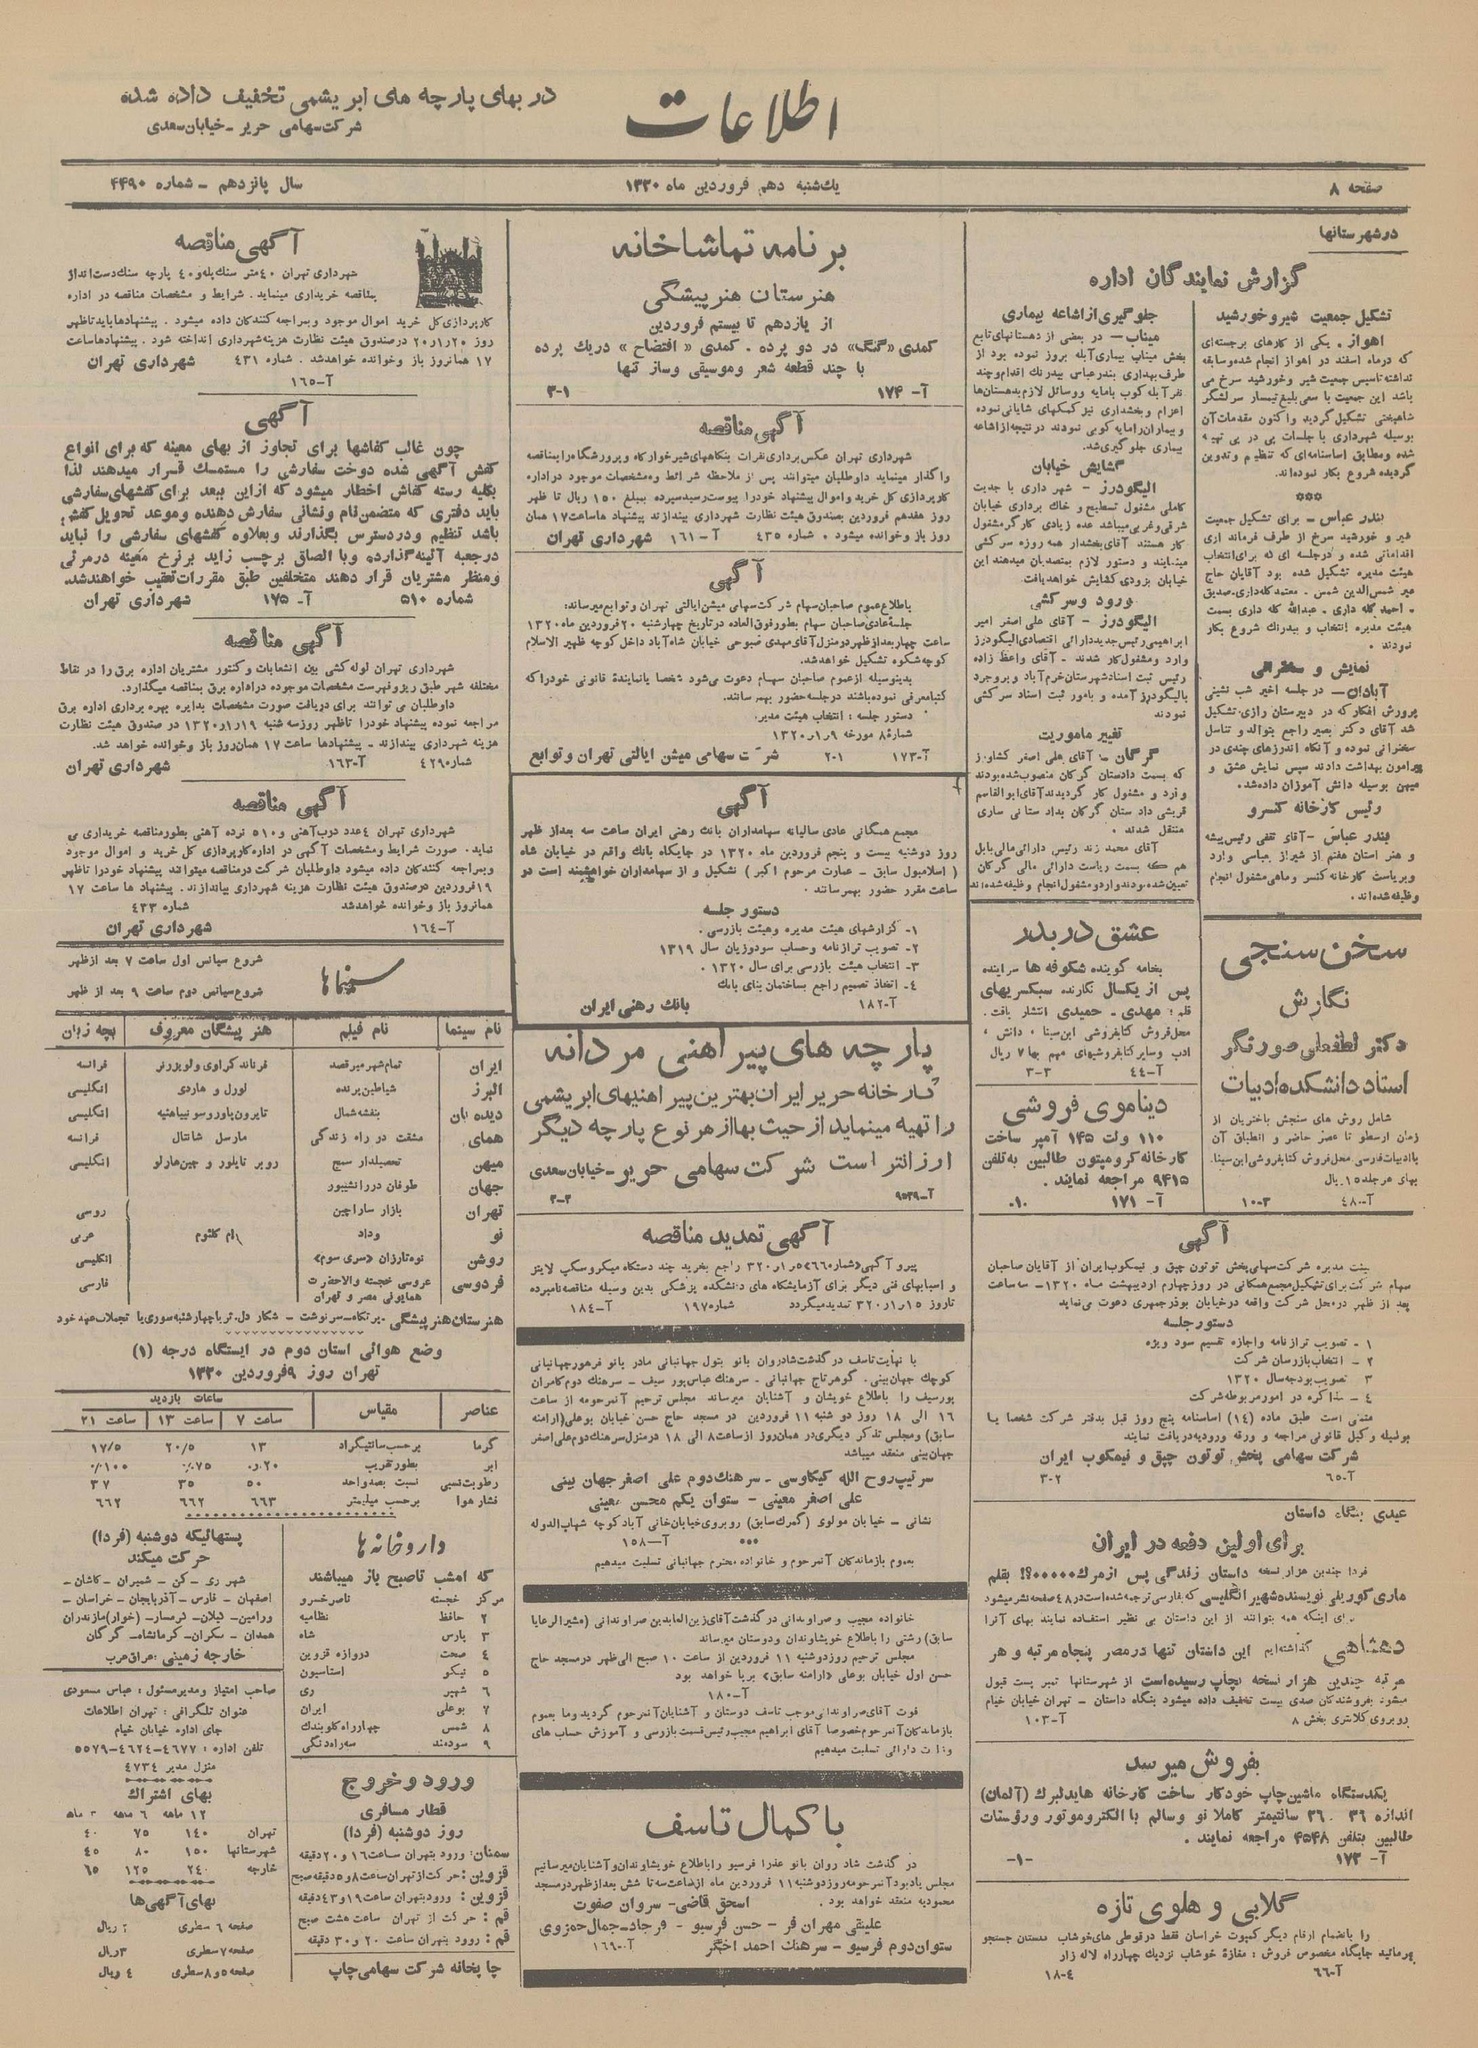 در بهای پارچه های ابریشمی تخفیف داده شده
شرکت سهامی حریر - خیابان سعدی
اطلاعات
صفحه ۸
یکشنبه دهم فروردین ماه ۱۳۲۰
سال پانزدهم - شماره ۴۴۹۰
در شهرستانها
گزارش نمایندگان اداره
تشکیل جمعیت شیر و خورشید
اهواز - یکی از کارهای برجسته‌ای
که در ماه اسفند در اهواز انجام شده و سابقه
نداشته تاسیس جمعیت شیر و خورشید سرخ می
باشد این جمعیت با سعی بلیغ تیمسار سرلشگر
شاهبختی تشکیل گردید و اکنون مقدمات آن
بوسیله شهرداری با جلسات پی در پی تهیه
شده و مطابق اساسنامه‌ای که تنظیم و تدوین
گردیده شروع بکار نموده‌اند
***
بندر عباس - برای تشکیل جمعیت
شیر و خورشید سرخ از طرف فرمانداری
اقداماتی شده و در جلسه ای که برای انتخاب
هیئت مدیره تشکیل شده بود آقایان حاج
میر شمس الدین شمس . معتمد گله داری . صدیق
. احمد گله داری . عبدالله گله داری بسمت
هیئت مدیره انتخاب و بیدرنگ شروع بکار
نمودند .
نمایش و سخنرانی
آبادان - در جلسه اخیر شب نشینی
پرورش افکار که در دبیرستان رازی تشکیل
شد آقای دکتر بصیر راجع بتوالد و تناسل
سخنرانی نموده و آنگاه اندرزهای چندی در
پیرامون بهداشت دادند سپس نمایش عشق و
میهن بوسیله دانش آموزان داده شد.
رئیس کارخانه کنسرو
بندر عباس - آقای تقفی رئیس پیشه
و هنر استان هفتم از شیراز بعباسی وارد
و بریاست کارخانه کنسرو ماهی مشغول انجام
وظیفه شده‌اند .
جلوگیری از اشاعه بیماری
میناب - در بعضی از دهستانهای تابع
بخش میناب بیماری آبله بروز نموده بود از
طرف بهداری بندر عباس بیدرنگ اقدام و چند
نفر آبله کوب با مایه و وسائل لازم بدهستانها
اعزام و بخشداری نیز کمکهای شایانی نموده
و بیماران را مایه کوبی نمودند در نتیجه از اشاعه
بیماری جلوگیری شد.
گشایش خیابان
الیگودرز - شهرداری با جدیت
کاملی مشغول تسطیح و خاک برداری خیابان
شرقی و غربی میباشد عده زیادی کارگر مشغول
کار هستند آقای بخشدار همه روزه سرکشی
مینمایند و دستور لازم بمتصدیان میدهند این
خیابان بزودی گشایش خواهد یافت.
ورود و سرکشی
الیگودرز - آقای علی اصغر امیر
ابراهیمی رئیس جدید دارائی اقتصادی الیگودرز
وارد و مشغول کار شدند - آقای واعظ زاده
رئیس ثبت اسناد شهرستان خرم آباد و بروجرد
بالیگودرز آمده و بامور ثبت اسناد سرکشی
نمودند
تغییر ماموریت
گرگان - آقای علی اصغر کشاورز
که بسمت دادستان گرگان منصوب شده بودند
وارد و مشغول کار گردیدند آقای ابوالقاسم
قریشی دادستان گرگان بدادستانی ساری
منتقل شدند .
آقای محمد زند رئیس دارائی مالی بابل
هم که بسمت ریاست دارائی مالی گرگان
تعیین شده بودند وارد و مشغول انجام وظیفه شده‌اند
سخن سنجی
نگارش
دکتر لطفعلی صورتگر
استاد دانشکده ادبیات
شامل روش های سنجش باختریان از
زمان ارسطو تا عصر حاضر و انطباق آن
با ادبیات فارسی محل فروش کتابفروشی ابن سینا.
بهای هر جلد ۱۵ ریال
آ-۴۸۰
۳-۱۰
عشق دربدر
بخامه گوینده شکوفه ها سراینده
پس از یکسال نگارنده سبکسریهای
قلم؛ مهدی - حمیدی انتشار یافت.
محل فروش کتابفروشی ابن سینا ، دانش ،
ادب و سایر کتابفروشیهای مهم بها ۷ ریال
آ-۴۴
۳-۳
دیناموی فروشی
۱۱۰ ولت ۱۴۵ آمپر ساخت
کارخانه کرومپتون طالبین به تلفن
۹۴۱۵ مراجعه نمایند .
آ- ۱۷۱
۱۰-
آگهی
هیئت مدیره شرکت سهامی پخش توتون چپق و تیمکوب ایران از آقایان صاحبان
سهام شرکت برای تشکیل مجمع همگانی در روز چهارم اردیبهشت ماه ۱۳۲۰ - سه ساعت
بعد از ظهر در محل شرکت واقعه در خیابان بوذرجمهری دعوت مینماید
دستور جلسه
۱ - تصویب ترازنامه و اجازه تقسیم سود ویژه
۲ - انتخاب بازرسان شرکت
۳ - تصویب بودجه سال ۱۳۲۰
۴ - مذاکره در امور مربوطه شرکت
متمنی است طبق ماده (۱۴) اساسنامه پنج روز قبل بدفتر شرکت شخصا یا
بوسیله وکیل قانونی مراجعه و ورقه ورودیه دریافت نمایند
شرکت سهامی پخش توتون چپق و تیمکوب ایران
آ-۶۵
۲-۳
عیدی بنگاه داستان
برای اولین دفعه در ایران
فردا چندین هزار نسخه داستان زندگی پس از مرگ۰۰۰۰۰؟! بقلم
ماری کوریلی نویسنده شهیر انگلیسی که بفارسی ترجمه شده است در ۴۸ صفحه نشر میشود
برای اینکه همه بتوانند از این داستان بی نظیر استفاده نمایند بهای آنرا
دهشاهی گذاشته‌ایم این داستان تنها در مصر پنجاه مرتبه و هر
مرتبه چندین هزار نسخه بچاپ رسیده است از شهرستانها تمبر پست قبول
میشود بفروشندگان صدی بیست تخفیف داده میشود بنگاه داستان - تهران خیابان خیام
روبروی کلانتری بخش ۸
آ-۱۰۳
بفروش میرسد
یکدستگاه ماشین چاپ خودکار ساخت کارخانه هایدلبرک (آلمان)
اندازه ۳۶ . ۲۶ سانتیمتر کاملا نو و سالم با الکتروموتور و رؤستات
طالبین بتلفن ۴۵۴۸ مراجعه نمایند .
آ- ۱۷۲
-۱-
گلابی و هلوی تازه
را بانضمام ارقام دیگر کمپوت خراسان فقط در قوطی های خوشاب میتوان جستجو
فرمائید جایگاه مخصوص فروش : مغازه خوشاب نزدیک چهارراه لاله زار
آ-۶۶
۴-۱۸
برنامه تماشاخانه
هنرستان هنرپیشگی
از یازدهم تا بیستم فروردین
کمدی «گنگ» در دو پرده . کمدی « افتضاح » در یک پرده
با چند قطعه شعر و موسیقی و ساز تنها
آ- ۱۷۴
۱-۳
آگهی مناقصه
شهرداری تهران عکس برداری نفرات بنگاههای شیرخوارگاه و پرورشگاه را بمناقصه
واگذار مینماید داوطلبان میتوانند پس از ملاحظه شرائط و مشخصات موجود در اداره
کارپردازی کل خرید و اموال پیشنهاد خود را پیوست رسید سپرده بمبلغ ۱۵۰ ریال تا ظهر
روز هفدهم فروردین بصندوق هیئت نظارت شهرداری بیندازند پیشنهادها ساعت ۱۷ همان
روز باز و خوانده میشود . شماره ۴۳۵
آ-۱۶۱
شهرداری تهران
آگهی
باطلاع عموم صاحبان سهام شرکت سهامی میشن ایالتی تهران و توابع میرساند:
جلسه عادی صاحبان سهام بطور فوق العاده در تاریخ چهارشنبه ۲۰ فروردین ماه ۱۳۲۰
ساعت چهار بعد از ظهر در منزل آقای مهدی صبوحی خیابان شاه آباد داخل کوچه ظهیر الاسلام
کوچه شکوه تشکیل خواهد شد.
بدینوسیله از عموم صاحبان سهام دعوت می‌شود شخصا یا نماینده قانونی خود را که
کتبا معرفی نموده باشند در جلسه حضور بهم رسانند.
دستور جلسه : انتخاب هیئت مدیر.
شمارهٔ ۸ مورخه ۹ر۱ر۱۳۲۰
آ-۱۷۳
۱-۲
شرکت سهامی میشن ایالتی تهران و توابع
آگهی
مجمع همگانی عادی سالیانه سهامداران بانک رهنی ایران ساعت سه بعد از ظهر
روز دوشنبه بیست و پنجم فروردین ماه ۱۳۲۰ در جایگاه بانک واقع در خیابان شاه
( اسلامبول سابق - عمارت مرحوم اکبر ) تشکیل و از سهامداران خواهشمند است در
ساعت مقرر حضور بهم رسانند .
دستور جلسه
۱- گزارشهای هیئت مدیره و هیئت بازرسی .
۲- تصویب ترازنامه و حساب سود و زیان سال ۱۳۱۹
۳- انتخاب هیئت بازرسی برای سال ۱۳۲۰ .
۴- اتخاذ تصمیم راجع بساختمان بنای بانک
آ-۱۸۲
بانک رهنی ایران
پارچه های پیراهنی مردانه
کارخانه حریر ایران بهترین پیراهنیهای ابریشمی
را تهیه مینماید از حیث بها از هر نوع پارچه دیگر
ارزانتر است شرکت سهامی حریر - خیابان سعدی
آ-۹۵۳۹
۲-۲
آگهی تمدید مناقصه
پیرو آگهی «شماره ۶۶۰» ۵ر۱ر۳۲۰ راجع بخرید چند دستگاه میکروسکپ لایتز
و اسبابهای فنی دیگر برای آزمایشگاه های دانشکده پزشکی بدین وسیله مناقصه نامبرده
تا روز ۱۵ر۱ر۳۲۰ تمدید میگردد
شماره ۱۹۷۰
آ-۱۸۴
با نهایت تاسف در گذشت شادروان بانو بتول جهانبانی مادر بانو فرهور جهانبانی
کوچک جهان بینی . گوهرتاج جهانبانی . سرهنگ عباس پور سیف . سرهنگ دوم کامران
پورسیف را باطلاع خویشان و آشنایان میرساند مجلس ترحیم آنمرحومه از ساعت
۱۶ الی ۱۸ روز دوشنبه ۱۱ فروردین در مسجد حاج حسن خیابان بوعلی (ارامنه
سابق) و مجلس تذکر دیگری در همان روز از ساعت ۸ الی ۱۸ در منزل سرهنگ دوم علی اصغر
جهان بینی منعقد میباشد
سرتیپ روح الله کیکاوسی - سرهنگ دوم علی اصغر جهان بینی
علی اصغر معینی - ستوان یکم محسن معینی
نشانی - خیابان مولوی (گمرک سابق) روبروی خیابان خانی آباد کوچه شهاب الدوله
***
آ-۱۵۸
بعموم بازماندگان آنمرحوم و خانواده محترم جهانبانی تسلیت میدهیم
خانواده مجیب و صراوندانی در گذشت آقای زین العابدین صراوندانی (مشیرالرعایا
سابق) رشتی را باطلاع خویشاوندان و دوستان میرساند
مجلس ترحیم روز دوشنبه ۱۱ فروردین از ساعت ۱۰ صبح الی ظهر در مسجد حاج
حسن اول خیابان بوعلی «ارامنه سابق» برپا خواهد بود
آ-۱۸۰
فوت آقای صراوندانی موجب تاسف دوستان و آشنایان آنمرحوم گردید و ما بعموم
بازماندگان آنمرحوم خصوصا آقای ابراهیم مجیب رئیس قسمت بازرسی و آموزش حساب های
وزارت دارائی تسلیت میدهیم
با کمال تاسف
در گذشت شاد روان بانو عذرا فرسیو را باطلاع خویشاوندان و آشنایان میرسانیم
مجلس یادبود آنمرحومه روز دوشنبه ۱۱ فروردین ماه از ساعت سه تا شش بعد از ظهر در مسجد
محمودیه منعقد خواهد بود .
اسحق قاضی - سروان صفوت
علینقی مهران فر - حسن فرسیو - فرجاد - جمال حمزوی
ستوان دوم فرسیو - سرهنگ احمد اخگر
آ-۱۶۹۰
آگهی مناقصه
شهرداری تهران ۴۰ متر سنگ پله و ۴۰ پارچه سنگ دست انداز
بمناقصه خریداری مینماید. شرایط و مشخصات مناقصه در اداره
کارپردازی کل خرید اموال موجود و بمراجعه کنندگان داده میشود . پیشنهادها باید تا ظهر
روز ۲۰ر۱ر۲۰ در صندوق هیئت نظارت هزینه شهرداری انداخته شود . پیشنهادها ساعت
۱۷ همانروز باز و خوانده خواهد شد. شماره ۴۳۱
شهرداری تهران
آ-۱۶۵
آگهی
چون غالب کفاشها برای تجاوز از بهای معینه که برای انواع
کفش آگهی شده دوخت سفارشی را مستمسک قرار میدهند لذا
بکلیه رسته کفاش اخطار میشود که از این ببعد برای کفشهای سفارشی
باید دفتری که متضمن نام و نشانی سفارش دهنده و موعد تحویل کفش
باشد تنظیم و در دسترس بگذارند و بعلاوه کفشهای سفارشی را نباید
در جعبه آئینه گذارده و با الصاق برچسب زاید بر نرخ معینه در مرئی
و منظر مشتریان قرار دهند متخلفین طبق مقررات تعقیب خواهند شد.
شماره ۵۱۰
آ- ۱۷۵
شهرداری تهران
آگهی مناقصه
شهرداری تهران لوله کشی بین انشعابات و کنتور مشتریان اداره برق را در نقاط
مختلفه شهر طبق ریز و فهرست مشخصات موجوده در اداره برق بمناقصه میگذارد.
داوطلبان می توانند برای دریافت صورت مشخصات بدایره بهره برداری اداره برق
مراجعه نموده پیشنهاد خود را تا ظهر روز سه شنبه ۱۹ر۱ر۱۳۲۰ در صندوق هیئت نظارت
هزینه شهرداری بیندازند - پیشنهادها ساعت ۱۷ همان روز باز و خوانده خواهد شد.
شماره ۴۲۹
آ-۱۶۳
شهرداری تهران
آگهی مناقصه
شهرداری تهران ۴ عدد درب آهنی و ۵۱۰ نرده آهنی بطور مناقصه خریداری می
نماید. صورت شرایط و مشخصات آگهی در اداره کارپردازی کل خرید و اموال موجود
و بمراجعه کنندگان داده میشود داوطلبان شرکت در مناقصه میتوانند پیشنهاد خود را تا ظهر
۱۹ فروردین در صندوق هیئت نظارت هزینه شهرداری بیاندازند. پیشنهادها ساعت ۱۷
همانروز باز و خوانده خواهد شد
شماره ۴۳۳
آ-۱۶۴
شهرداری تهران
سینماها
شروع سیانس اول ساعت ۷ بعد از ظهر
شروع سیانس دوم ساعت ۹ بعد از ظهر
نام سینما | نام فیلم | هنرپیشگان معروف | بچه زبان
ایران | تمام شهر میرقصد | فرناند گراوی و لویز رنر | فرانسه
البرز | شیاطین پرنده | لورل و هاردی | انگلیسی
دیده بان | بنفشه شمال | تایرون پاور و سونیا هنیه | انگلیسی
همای | مشقت در راه زندگی | مارسل شانتال | فرانسه
میهن | تحصیلدار سمج | روبر تایلور و جین هارلو | انگلیسی
جهان | طوفان در رانشیپور
تهران | بازار ساراچین | روسی
نو | وداد | ام کلثوم | عربی
روشن | نوه تارزان «سری سوم» | انگلیسی
فردوسی | عروسی خجسته والاحضرت همایونی مصر و تهران | فارسی
هنرستان هنرپیشگی - پرتگاه - سرنوشت - شکار دل. ثریا چهارشنبه سوری یا تجملات عهد خود
وضع هوائی استان دوم در ایستگاه درجه (۱)
تهران روز ۹ فروردین ۱۳۲۰
عناصر | مقیاس | ساعات بازدید
ساعت ۷ | ساعت ۱۳ | ساعت ۲۱
گرما | برحسب سانتیگراد | ۱۳ | ۲۰/۵ | ۱۷/۵
ابر | بطور تقریب | ۰/۰۲۰ | ۰/۰۷۵ | ۰/۰۱۰۰
رطوبت نسبی | نسبت بصد واحد | ۵۰ | ۳۵ | ۳۷
فشار هوا | برحسب میلیمتر | ۶۶۳ | ۶۶۲ | ۶۶۲
داروخانه ها
که امشب تا صبح باز میباشند
مرکز | خجسته | ناصر خسرو
۲ | حافظ | نظامیه
۳ | پارس | شاه
۴ | صحت | دروازه قزوین
۵ | نیکو | استاسیون
۶ | شهیر | ری
۷ | بوعلی | ایران
۸ | شمس | چهارراه کلوبندک
۹ | سودمند | سه راه دنگی
ورود و خروج
قطار مسافری
روز دوشنبه (فردا)
سمنان: ورود بتهران ساعت ۱۶ و ۲۰ دقیقه
قزوین: حرکت از تهران ساعت ۸ و ۵ دقیقه صبح
قزوین: ورود بتهران ساعت ۱۹ و ۴۳ دقیقه
قم : حرکت از تهران ساعت هشت صبح
قم : ورود بتهران ساعت ۲۰ و ۳۰ دقیقه
چاپخانه شرکت سهامی چاپ
پستهائیکه دوشنبه (فردا)
حرکت میکند
شهر ری - کن - شمیران - کاشان -
اصفهان - فارس - آذربایجان - خراسان -
ورامین - گیلان - گرمسار - (خوار) مازندران
همدان - سکران - کرمانشاه - گرگان
خارجه زمینی : عراق عرب
صاحب امتیاز و مدیر مسئول : عباس مسعودی
عنوان تلگرافی : تهران اطلاعات
جای اداره خیابان خیام
تلفن اداره : ۴۶۷۷-۴۶۲۴-۵۵۷۹
منزل مدیر ۴۷۳۴
بهای اشتراک
۱۲ ماهه | ۶ ماهه | ۳ ماه
تهران | ۱۴۰ | ۷۵ | ۴۰
شهرستانها | ۱۵۰ | ۸۰ | ۴۵
خارجه | ۲۴۰ | ۱۲۵ | ۶۵
بهای آگهی‌ها
صفحه ۶ سطری ۲ ریال
صفحه ۷ سطری ۳ ریال
صفحه ۵ و ۸ سطری ۴ ریال